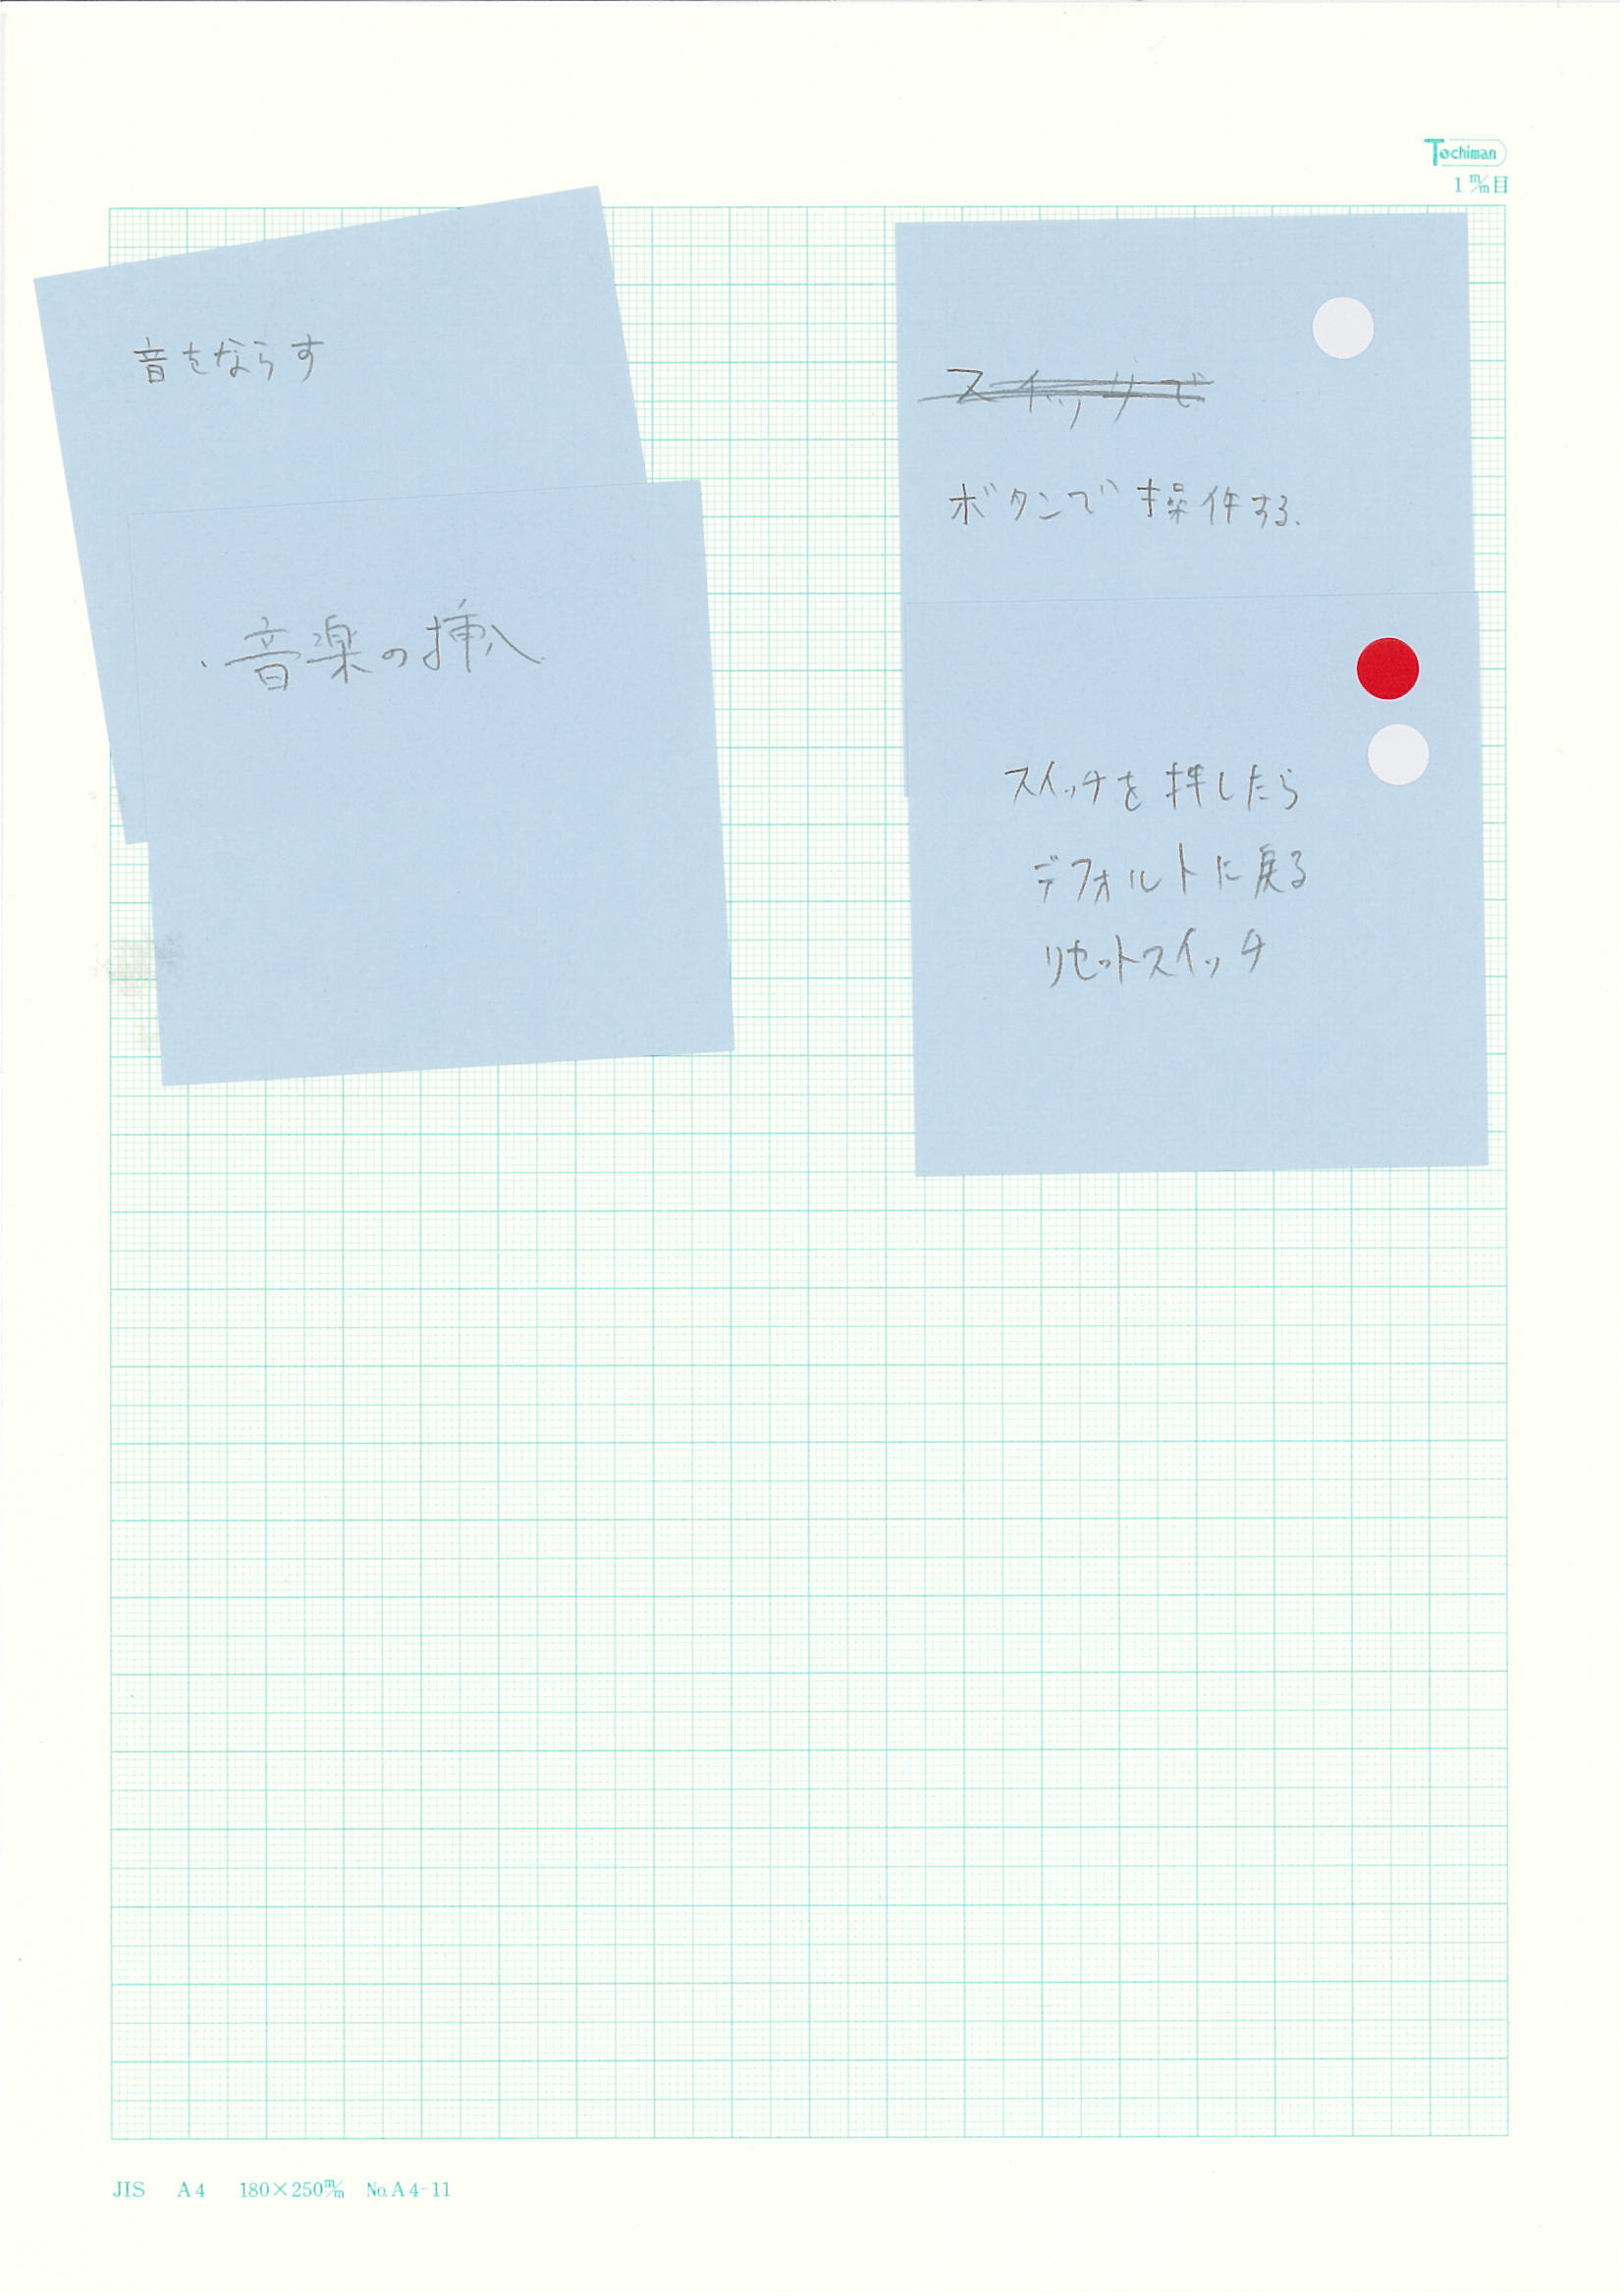 Tochiman
1 m/m目
音をならす
・音楽の挿入
スイッチで
ボタンで操作する.
スイッチを押したら
デフォルトに戻る
リセットスイッチ
JIS A4 180×250m/m No.A4-11